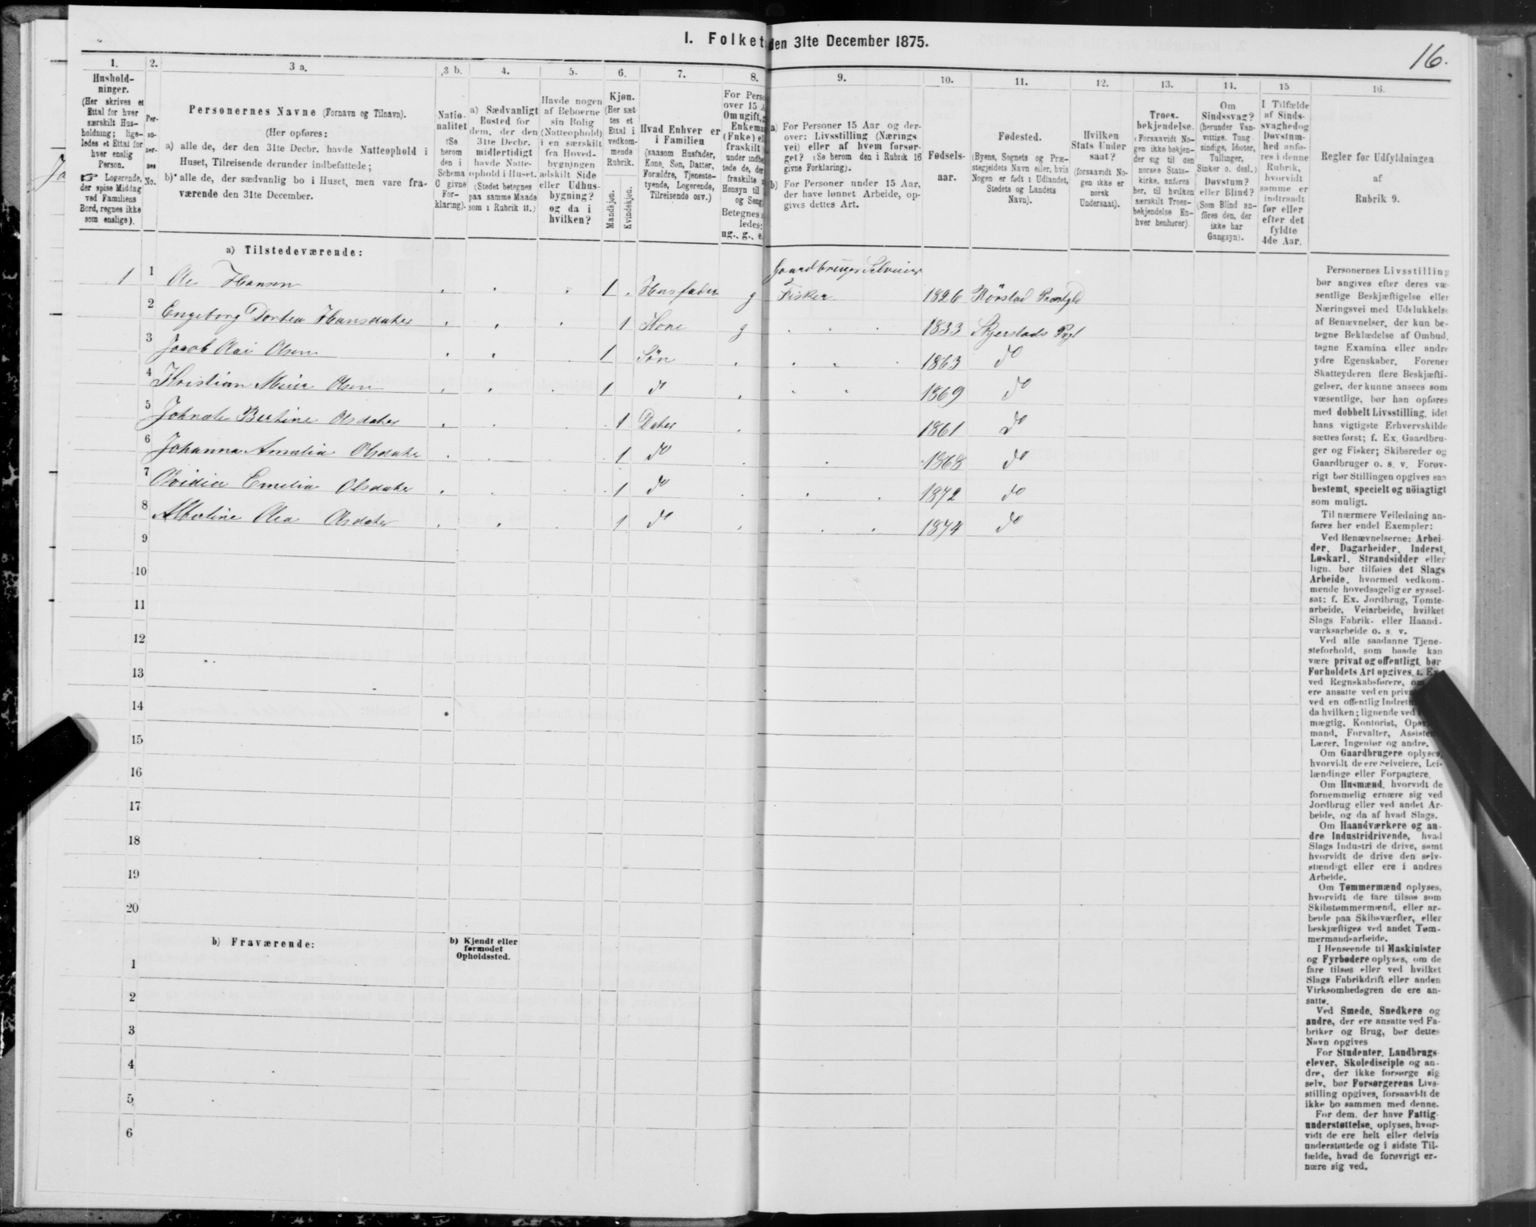 I. Folket den 31te December 1875.
16.
1.
Hushold-
ninger.
(Her skrives et
Ettal for hver
særskilt Hus-
holdning; lige-
ledes et Ettal for
hver enslig
Person.
☞ Logerende,
der spise Middag
ved Familiens
Bord, regnes ikke
som enslige).
2.
Per-
so-
ner-
nes
No.
3 a.
Personernes Navne (Fornavn og Tilnavn).
(Her opføres:
a) alle de, der den 31te Decbr. havde Natteophold i
Huset, Tilreisende derunder indbefattede;
b) alle de, der sædvanlig bo i Huset, men vare fra-
værende den 31te December.
3 b.
Natio-
nalitet
(Se
herom
den i
Schema
C givne
For-
klaring).
4.
a) Sædvanligt
Bosted for
dem, der den
31te Decbr.
midlertidigt
havde Natte-
ophold i Huset.
(Stedet betegnes
paa samme Maade
som i Rubrik 11.)
5.
Havde nogen
af Beboerne
sin Bolig
(Natteophold)
i en særskilt
fra Hoved-
bygningen
adskilt Side
eller Udhus-
bygning?
og da i
hvilken?
6.
Kjøn.
(Her sæt-
tes et
Ettal i
vedkom-
mende
Rubrik.
Mandkjøn.
Kvindekjøn.
7.
Hvad Enhver er
i Familien
(saasom Husfader,
Kone, Søn, Datter,
Forældre, Tjeneste-
tyende, Logerende,
Tilreisende osv.)
8.
For Pers
over 15
Om ugift,
Enkem
(Fnke) el
fraskilt
9.
a) For Personer 15 Aar og der-
over: Livsstilling (Nærings
vei) eller af hvem forsør-
get? (Se herom den i Rubrik 16
givne Forklaring).
b) For Personer under 15 Aar,
der have lønnet Arbeide, op-
gives dettes Art.
10.
Fødsels-
aar.
11.
Fødested.
(Byens, Sognets og Præ-
stegjeldets Navn eller, hvis
Nogen er født i Udlandet,
Stedets og Landets
Navn).
12.
Hvilken
Stats Under
saat?
(forsaavidt No-
gen ikke er
norsk
Undersaat).
13.
Troes-
bekjendelse.
(Forsaavidt No-
gen ikke bekjen-
der sig til den
norske Stats-
kirke, anføres
her, til hvilken
særskilt Troes-
bekjendelse En-
hver henhører).
14.
Om
Sindssvag?
(herunder Van-
vittige, Tung-
sindige, Idioter,
Tullinger,
Sinker o. desl.)
Døvstum?
eller Blind?
(Som Blind an-
føres den, der
ikke har
Gangsyn).
15
I Tilfælde
af Sinds-
svaghed og
Døvstum-
hed anfø-
res i denne
Rubrik,
hvorvidt
samme er
indtraadt
før eller
efter det
fyldte
4de Aar.
16.
Regler for Udfyldningen
af
Rubrik 9.
a) Tilstedeværende:
1 1 Ole Hansen 1 Husfader g Gaardbruger Selveier Fisker 1826 Rørstad Præstgld
2 Engeborg Dortea Hansdatter 1 Kone g 1833 Skjerstads Pgl
3 Jacob Olai Olsen 1 Søn 1863 do
4 Kristian Meier Olsen 1 do 1869 do
5 Bertine Olsdatter 1 Datter 1861 do
6 Johanna Amalia Olsdatter 1 do 1868 do
7 Emilia Olsdatter 1 do 1872 do
8 Albertine Olea Olsdatter 1 do 1874 do
9
10
11
12
13
14
15
16
17
18
19
20
b) Fraværende:
b) Kjendt eller
formodet
Opholdssted.
1
2
3
4
5
6
Personernes Livsstilling
bør angives efter deres væ-
sentlige Beskjæftigelse eller
Næringsvei med Udelukkelse
af Benævnelser, der kun be-
tegne Beklædelse af Ombud,
tagne Examina eller andre
ydre Egenskaber. Forener
Skatteyderen flere Beskjæfti-
gelser, der kunne ansees som
væsentlige, bør han opføres
med dobbelt Livsstilling, idet
hans vigtigste Erhvervskilde
sættes først; f. Ex. Gaardbru-
ger og Fisker; Skibsreder og
Gaardbruger o. s. v. Forøv-
rigt bør Stillingen opgives saa
bestemt, specielt og nöiagtigt
som muligt.
Til nærmere Veiledning an-
føres her endel Exempler:
Ved Benævnelserne: Arbei-
der, Dagarbeider, Inderst,
Løskarl, Strandsidder eller
lign. bør tilføies det Slags
Arbeide, hvormed vedkom-
mende hovedsagelig er syssel-
sat; f. Ex. Jordbrug, Tomte-
arbeide, Veiarbeide, hvilket
Slags Fabrik- eller Haand-
værksarbeide o. s. v.
Ved alle saadanne Tjene-
steforhold, som baade kan
være privat og offentligt, bør
Forholdets Art opgives, f. Ex
ved Regnskabsførere, om
ere ansatte ved en priv
ved en offentlig Indretn
da hvilken; lignende ved
mægtig, Kontorist, Ops
mand, Forvalter, Assiste
Lærer, Ingeniør og andre.
Om Gaardbrugere oplyses,
hvorvidt de ere Selveiere, Lei-
lændinge eller Forpagtere.
Om Husmænd, hvorvidt de
fornemmelig ernære sig ved
Jordbrug eller ved andet Ar-
beide, og da af hvad Slags.
Om Haandværkere og an-
dre Industridrivende, hvad
Slags Industri de drive, samt
hvorvidt de drive den selv-
stændigt eller ere i andres
Arbeide.
Om Tømmermænd oplyses,
hvorvidt de fare tilsøs som
Skibstømmermænd, eller ar-
beide paa Skibsværfter, eller
beskjæftiges ved andet Tøm-
mermandsarbeide.
I Henseende til Maskinister
og Fyrbødere oplyses, om de
fare tilsøs eller ved hvilket
Slags Fabrikdrift eller anden
Virksomhedsgren de ere an-
satte.
Ved Smede, Snedkere og
andre, der ere ansatte ved Fa-
briker og Brug, bør dettes
Navn opgives
For Studenter, Landbrugs-
elever, Skoledisciple og an-
dre, der ikke forsørge sig
selv, bør Forsørgerens Livs-
stilling opgives, forsaavidt de
ikke bo sammen med denne.
For dem, der have Fattig
understøttelse, oplyses, hvor-
vidt de ere helt eller delvis
understøttede og i sidste Til-
fælde, hvad de forøvrigt er-
nære sig ved.